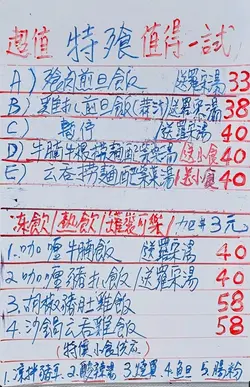 超值 特飡 值得一試
A) 豬肉煎旦飯 送羅宋湯 33
B) 雞扎煎旦飯(薯汁)送羅宋湯 38
C) 暫停 送羅宋湯 40
D) 牛腩牛根撈麵配紫菜湯 送小食 40
E) 云吞撈麵配紫菜湯 送小食 40
凍飲/熱飲/罐裝可樂/加$3元
1.咖喱牛腩飯 送羅宋湯 40
2.咖喱豬扒飯/送羅宋湯 40
3.胡椒豬肚雞飯 58
4.沙鍋云吞雞飯 58
(特價小食供应)
1.涼拌 2.酸辣湯 3.燒賣 4.魚旦 5.腸粉